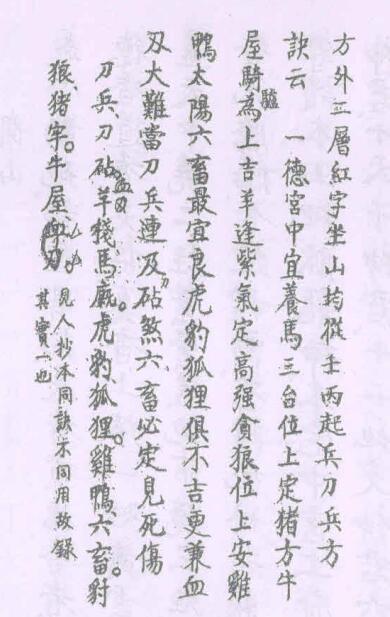 方外三層紅字坐山均從壬丙起兵刀兵方
訣云　一德宮中宜養馬三台位上定猪方牛
屋騎驢為上吉羊逢紫氣定高强貪狼位上安雞
鴨太陽六畜最宜良虎豹狐狸俱不吉更兼血
刄大難當刀兵連及砧煞六畜必定見死傷
刀兵刀砧羊棧馬廄。虎豹狐狸。雞鴨六畜。豺
狼猪字。牛屋
見人抄本同訣不同用故錄
其實一也